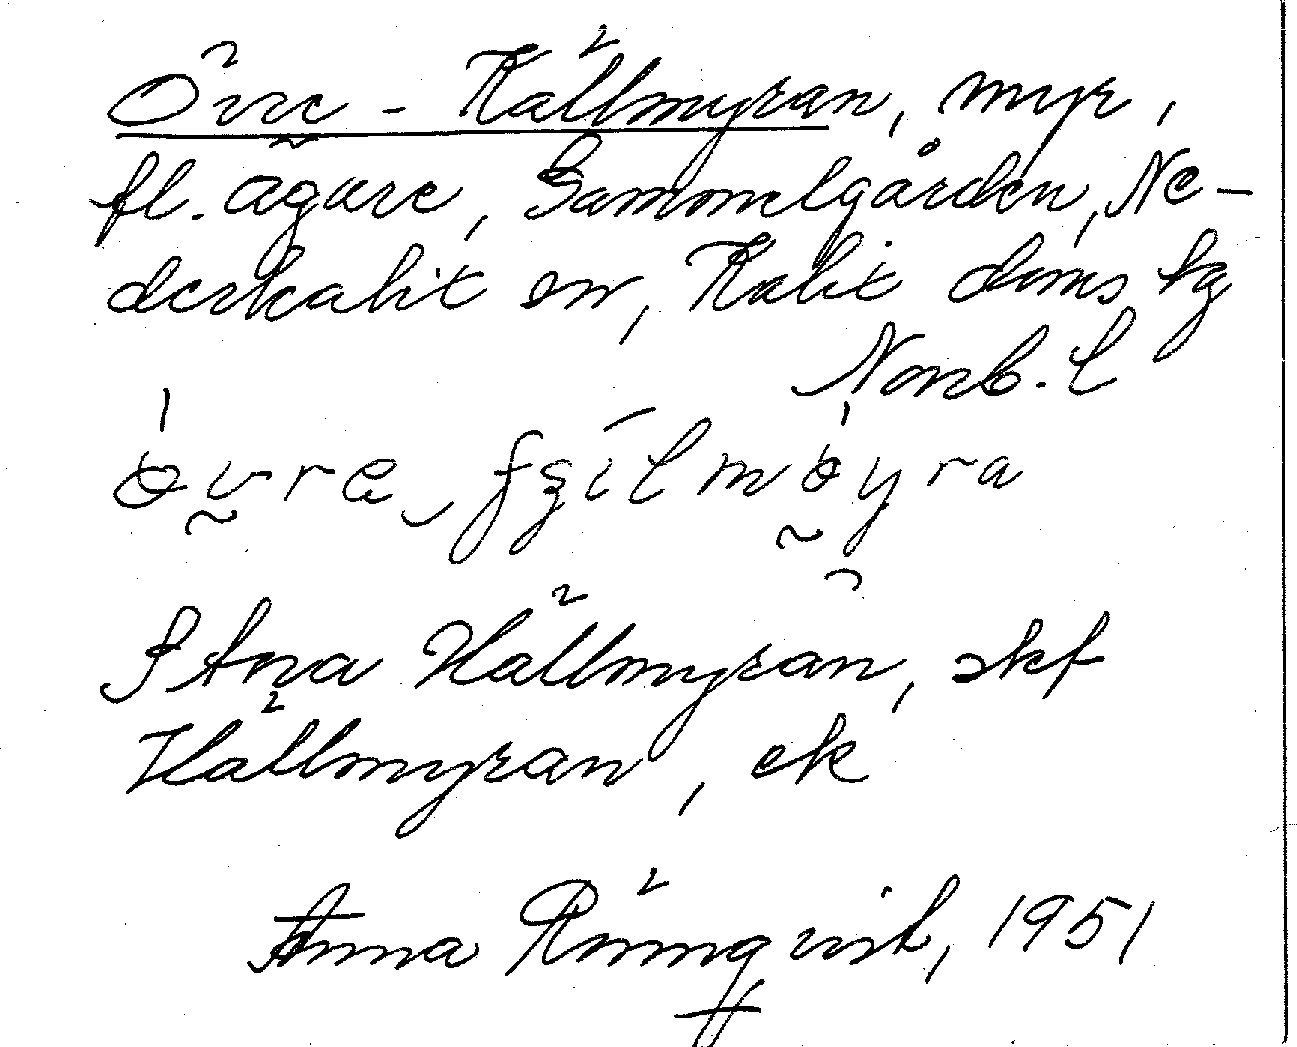 Övre-Källmyran, myr,
fl. ägare, Gammelgården, Ne-
derkalix sn, Kalix doms tg
Norrb. l
Källmyrån, skf
Källmyran, ek
Anna Rönnqvist, 1951